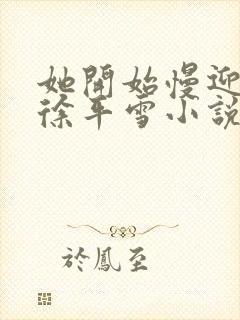 她開始慢迎
徐平雪小說
於鳳至